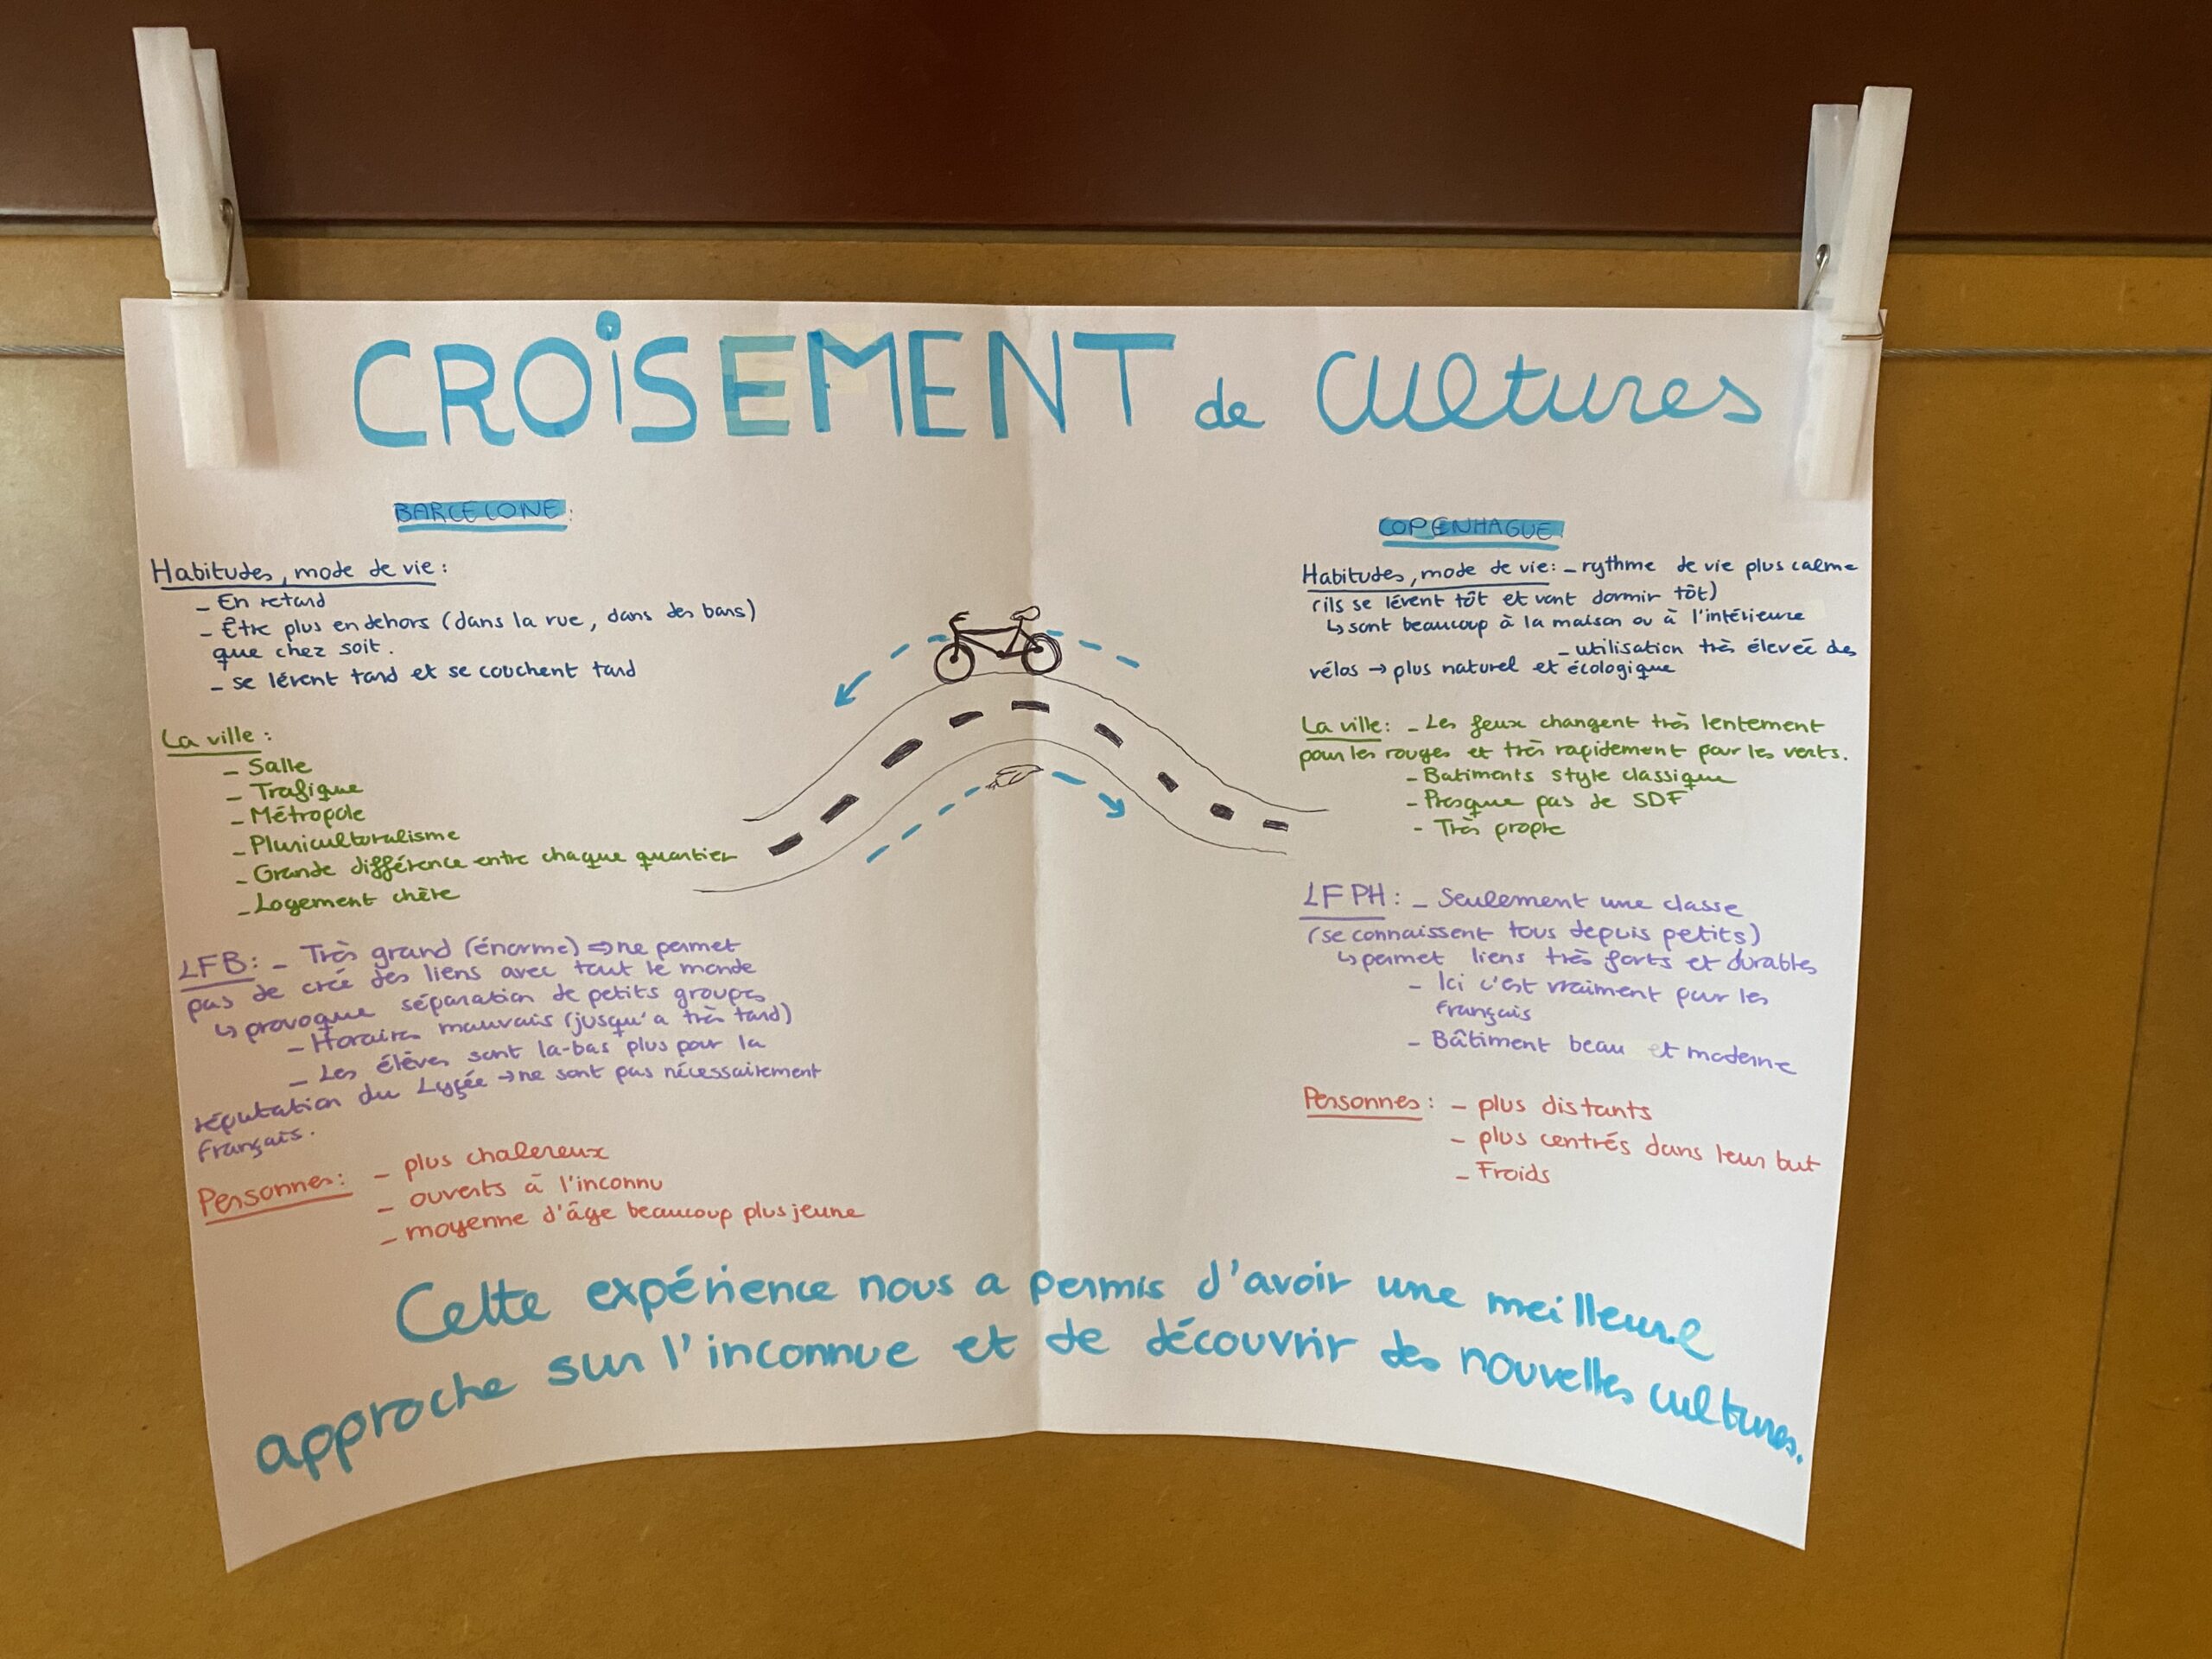 CROISEMENT de Cultures
BARCELONE:
Habitudes, mode de vie:
- En retard
- Être plus en dehors (dans la rue, dans des bars)
que chez soit.
- se lévent tard et se couchent tard
La ville:
- Salle
- Trafique
- Métropole
- Pluriculturalisme
- Grande différence entre chaque quartier
- Logement chère
LFB: - Très grand (énorme) ⇒ ne permet
pas de créé des liens avec tout le monde
↳ provoque séparation de petits groupes
- Horaires mauvais (jusqu'a très tard)
- Les élèves sont la-bas plus pour la
réputation du Lycée → ne sont pas nécessairement
français.
Personnes: - plus chalereux
- ouverts à l'inconnu
- moyenne d'âge beaucoup plus jeune
COPENHAGUE:
Habitudes, mode de vie: - rythme de vie plus calme
(ils se lévent tôt et vont dormir tôt)
↳ sont beaucoup à la maison ou à l'intérieure
- utilisation très élevée des
vélos → plus naturel et écologique
La ville: - Les feux changent très lentement
pour les rouges et très rapidement pour les verts.
- Batiments style classique
- Presque pas de SDF
- Très propre
LFPH: - Seulement une classe
(se connaissent tous depuis petits)
↳ permet liens très forts et durables
- Ici c'est vraiment pour les
français
- Bâtiment beau et moderne
Personnes: - plus distants
- plus centrés dans leur but
- Froids
Cette expérience nous a permis d'avoir une meilleure
approche sur l'inconnue et de découvrir des nouvelles cultures.